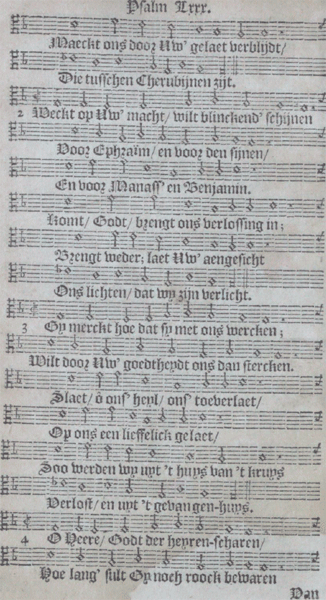 Psalm Lxxx.
Maeckt ons door Uw' gelaet verblijdt/
Die tusschen Cherubijnen zijt.
2 Weckt op Uw' macht/ wilt blinckend' schijnen
Voor Ephraïm/ en voor den sijnen/
En voor Manass' en Benjamin.
Komt/ Godt/ brengt ons verlossing in;
Brengt weder; laet Uw' aengesicht
Ons lichten/ dat wy zijn verlicht.
3 Gy merckt hoe dat sy met ons wercken;
Wilt door Uw' goedtheydt ons dan stercken.
Slaet/ ô ons' heyl/ ons' toeverlaet/
Op ons een lieffelick gelaet/
Soo werden wy uyt 't huys van 't kruys
Verlost/ en uyt 't gevangen-huys.
4 O Heere/ Godt der heyren-scharen/
Hoe lang' sult Gy noch roock bewaren
Dan